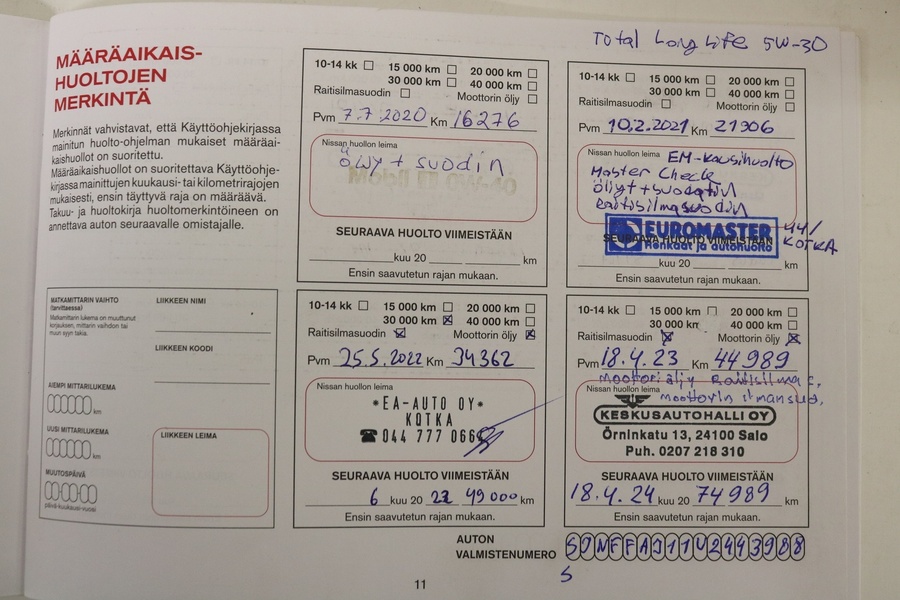 Total Long Life 5W-30
MÄÄRÄAIKAIS-
HUOLTOJEN
MERKINTÄ
Merkinnät vahvistavat, että Käyttöohjekirjassa
mainitun huolto-ohjelman mukaiset määräai-
kaishuollot on suoritettu.
Määräaikaishuollot on suoritettava Käyttöohje-
kirjassa mainittujen kuukausi- tai kilometrirajojen
mukaisesti, ensin täyttyvä raja on määräävä.
Takuu- ja huoltokirja huoltomerkintöineen on
annettava auton seuraavalle omistajalle.
10-14 kk 15 000 km 20 000 km
30 000 km 40 000 km
Raitisilmasuodin Moottorin öljy
Pvm 7.7 2020 Km 16276
Nissan huollon leima
öljy + suodin
SEURAAVA HUOLTO VIIMEISTÄÄN
kuu 20 km
Ensin saavutetun rajan mukaan.
10-14 kk 15 000 km 20 000 km
30 000 km 40 000 km
Raitisilmasuodin Moottorin öljy
Pvm 10.2.2021 Km 21906
Nissan huollon leima EM-kausihuolto
Master Check
öljyt+suodatin
Raitisilmasuodin
EUROMASTER 44/
Renkaat ja autohuolto KOTKA
SEURAAVA HUOLTO VIIMEISTÄÄN
kuu 20 km
Ensin saavutetun rajan mukaan.
MATKAMITTARIN VAIHTO
(tarvittaessa)
Matkamittarin lukema on muuttunut
korjauksen, mittarin vaihdon tai
muun syyn takia.
LIIKKEEN NIMI
LIIKKEEN KOODI
AIEMPI MITTARILUKEMA
km
UUSI MITTARILUKEMA
km
MUUTOSPÄIVÄ
päivä-kuukausi-vuosi
LIIKKEEN LEIMA
10-14 kk 15 000 km 20 000 km
30 000 km 40 000 km
Raitisilmasuodin Moottorin öljy
Pvm 25.5.2022 Km 34362
Nissan huollon leima
*EA-AUTO OY*
KOTKA
☎044 777 066
SEURAAVA HUOLTO VIIMEISTÄÄN
6 kuu 20 49000 km
Ensin saavutetun rajan mukaan.
10-14 kk 15 000 km 20 000 km
30 000 km 40 000 km
Raitisilmasuodin Moottorin öljy
Pvm 18.4.23 Km 44989
Moottoriöljy Raitisilmas.
Nissan huollon leima moottorin ilmansuod.
KESKUSAUTOHALLI OY
Örninkatu 13, 24100 Salo
Puh. 0207 218 310
SEURAAVA HUOLTO VIIMEISTÄÄN
18.4.24 kuu 20 74989 km
Ensin saavutetun rajan mukaan.
AUTON
VALMISTENUMERO SJNFFAJ11U2443988
S
11